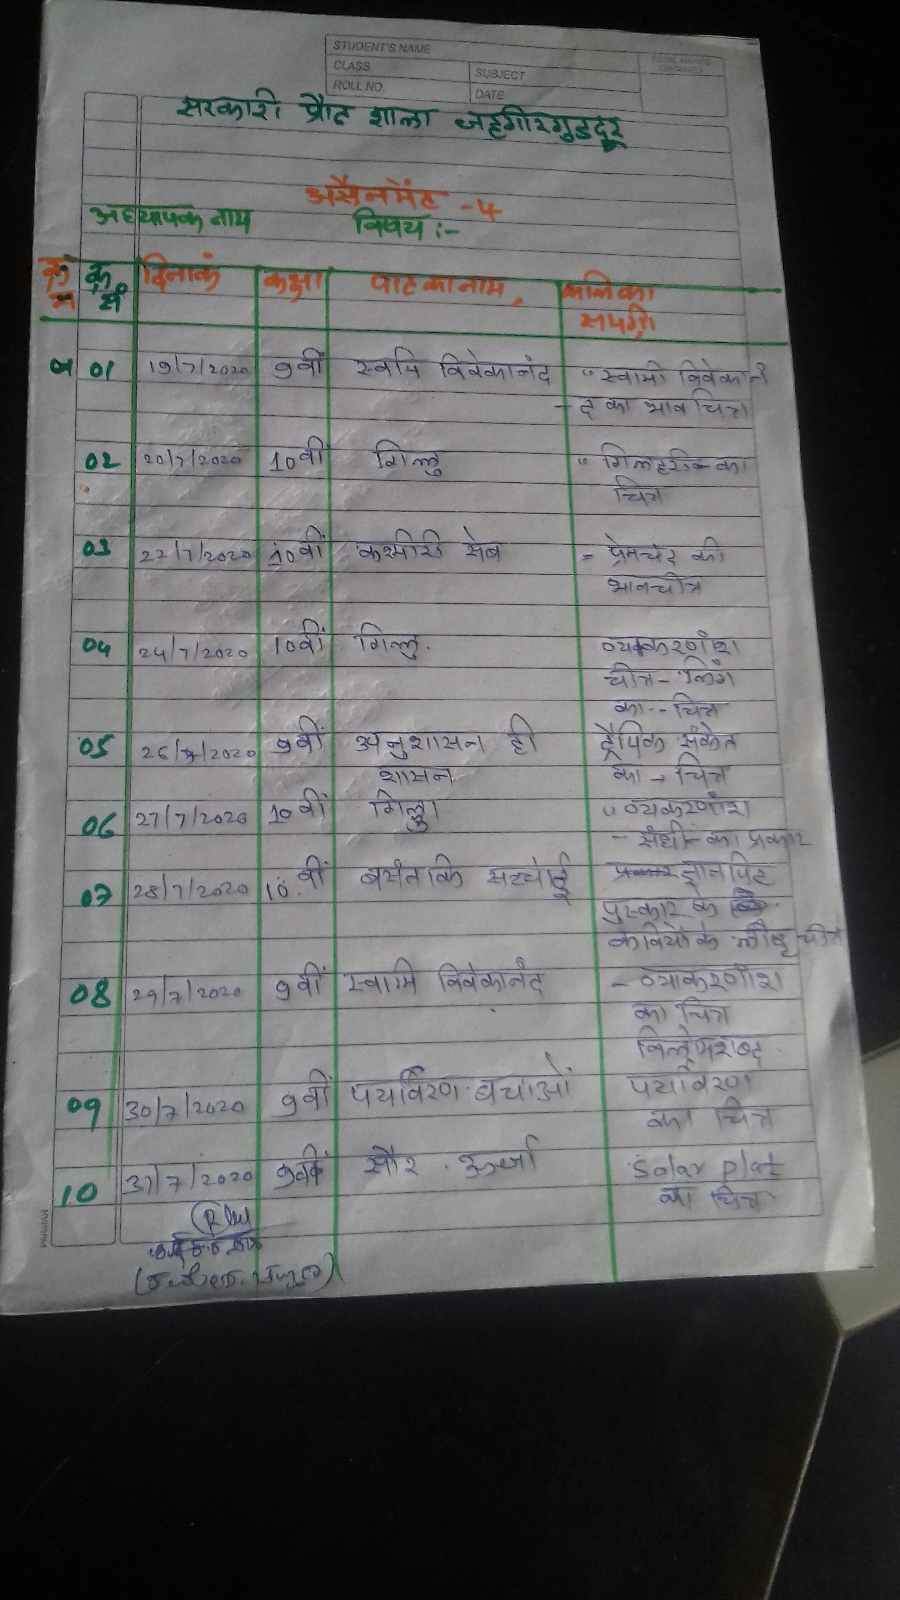 STUDENT'S NAME
CLASS
SUBJECT
ROLL NO.
DATE
सरकारी प्रौट शाला जहगीरगुडदूर
असैनमेंट -4
अध्यापक नाम विषय :-
क्र सं दिनाकं कक्षा पाट का नाम,
01 19/7/2020 9वीं स्वमि विवेकानंद "स्वामी विवेकानं
- द का भाव चित्र
02 20/7/2020 10वीं गिल्लु " गिलहरी का
चित्र
03 22/7/2020 10वीं कश्मीरी सेब = प्रेमचंद की
भावचीत्र
04 24/7/2020 10वीं गिल्लु. व्याकरणांश
चीत्र - लिंग
का -- चित्र
05 26/7/2020 9वीं अनुशासन ही ट्रैपिक संकेत
शासन का - चित्र
06 27/7/2020 10वीं गिल्लु " व्यकरणांश
- संधी - का प्रकार
07 28/7/2020 10वीं बसंत कि सच्चाई ज्ञानपिट
पुस्कार के
कवियों के
08 29/7/2020 9वीं स्वामि विवेकानंद - व्याकरणांश
का चित्र
विलोमशब्द
09 30/7/2020 9वीं पर्यावरण बचाओं पर्यावरण
का चित्र
10 31/7/2020 9वीं सौर ऊर्जा Solar plat
का चित्र